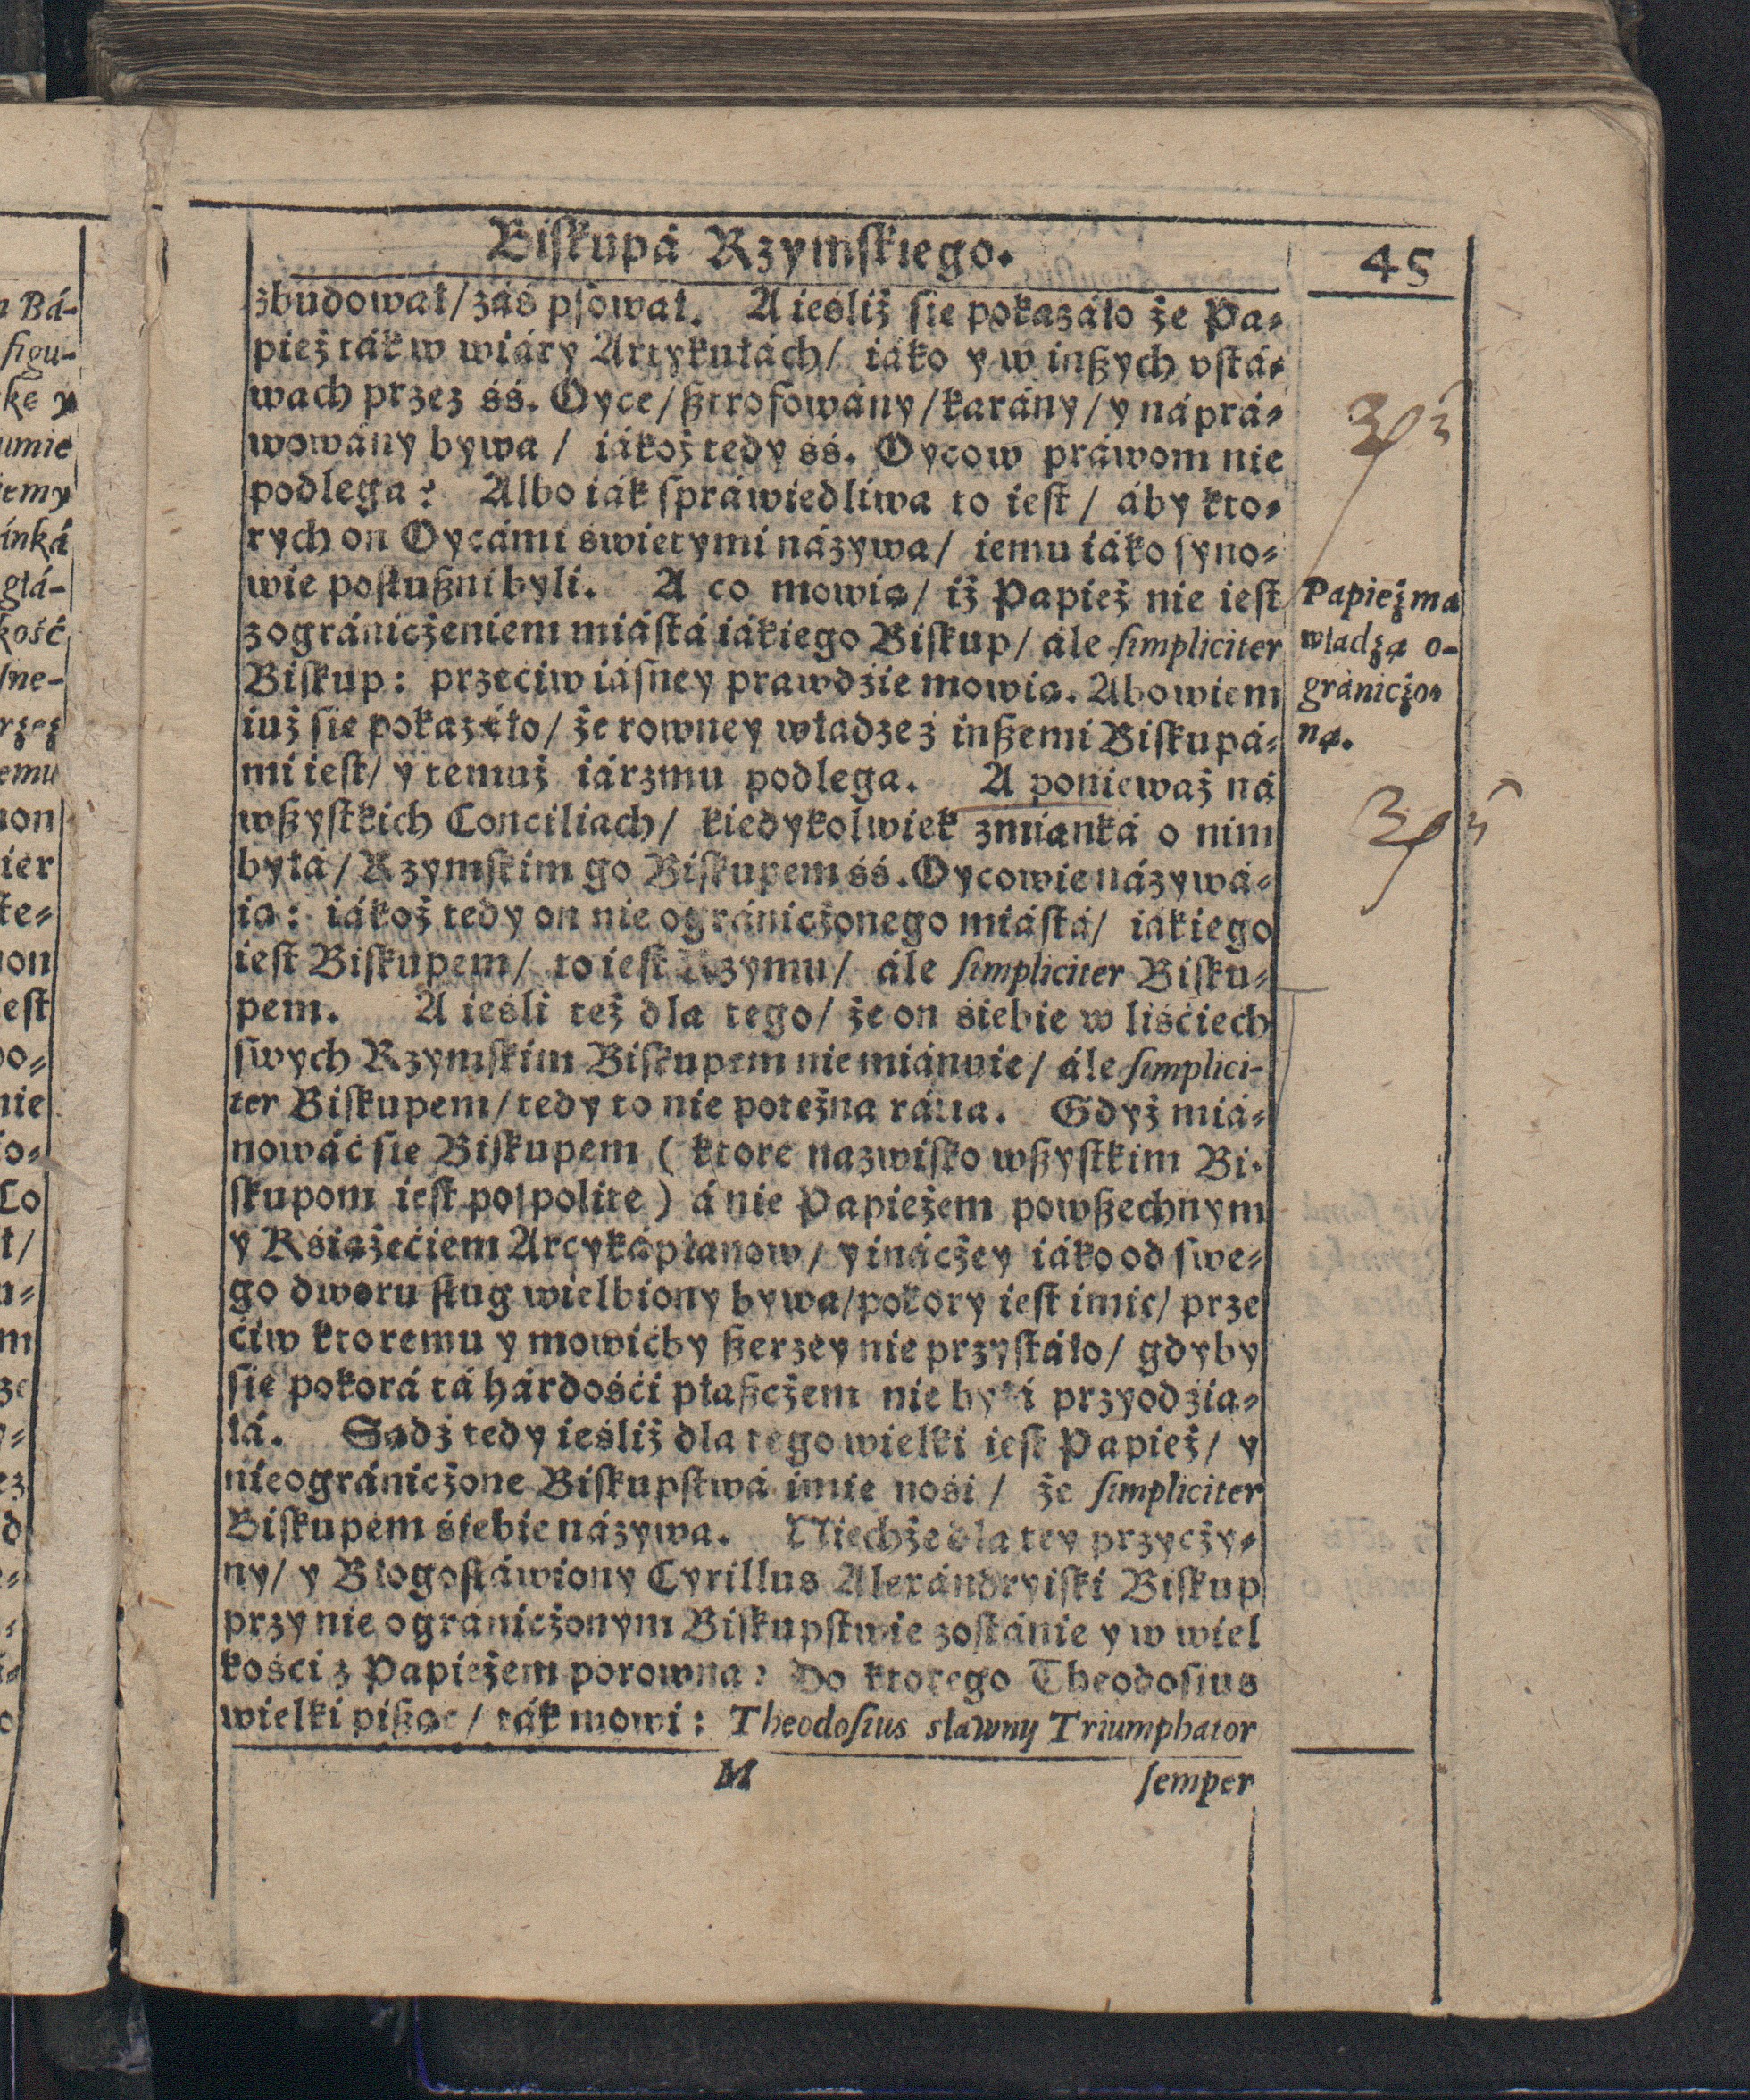 Biſkupá Rzymſkiego.
45
zbudował/ záś pſował. A ieśliż ſie pokazáło że Pa-
pież ták w wiáry Artykułách/ iáko y w inßych vſtá-
wach przez śś. Oyce/ ßtrofowány/ karány/ y nápra-
wowány bywa/ iákoż tedy śś. Oycow práwom nie
podlega? Albo iák ſpráwiedliwa to ieſt/ áby kto-
rych on Oycámi świetymi názywa/ iemu iáko ſyno-
wie poſłußni byli. A co mowią/ iż Papież nie ieſt
z ográniczeniem miáſtá iákiego Biſkup/ ále ſimpliciter
Biſkup: przećiw iáſney prawdźie mowią. Abowiem
iuż ſie pokazáło/ że rowney władze z inßemi Biſkupá-
mi ieſt/ y temuż iárzmu podlega. A ponieważ ná
wßyſtkich Conciliach/ kiedykolwiek zmianká o nim
byłá/ Rzymſkim go Biſkupem śś. Oycowie názywá-
ią: iákoż tedy on nie ográniczonego miáſtá/ iákiego
ieſt Biſkupem/ to ieſt Rzymu/ ále ſimpliciter Biſku-
pem. A ieśli też dla tego/ że on śiebie w liśćiech
ſwych Rzymſkim Biſkupem nie miánuie/ ále ſimplici-
ter Biſkupem/ tedy to nie potężna rátia. Gdyż miá-
nowáć ſie Biſkupem ( ktore nazwiſko wßyſtkim Bi-
ſkupom ieſt poſpolite ) á nie Papieżem powßechnym
y Kśiążećiem Arcykápłanow/ y ináczey iáko od ſwe-
go dworu ſług wielbiony bywa/ pokory ieſt imie/ prze
ćiw ktoremu y mowićby ßerzey nie przyſtáło/ gdyby
ſie pokorá tá hárdośći płaßczem nie byłá przyodźia-
łá. Sądź tedy ieśliż dla tego wielki ieſt Papież/ y
nieográniczone Biſkupſtwá imie nośi/ że ſimpliciter
Biſkupem śiebie názywa. Niechże dla tey przyczy-
ny/ y Błogoſłáwiony Cyrillus Alexándryiſki Biſkup
przy nie ograniczonym Biſkupſtwie zoſtánie y w wiel
kośći z Papieżem porowna: Do ktorego Theodoſius
wielki pißąc/ ták mowi: Theodoſius sławny Triumphator
M
ſemper
Papież ma
władzą o-
grániczo-
ną.